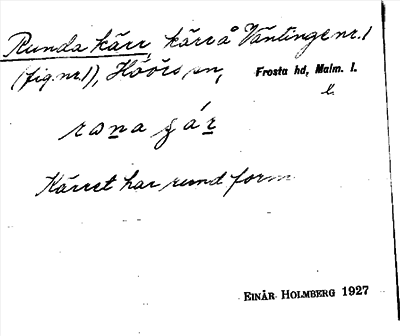 Runda kärr, kärr å Väntinge nr. 1
(fig. nr. 1), Höörs sn, Frosta hd, Malm. l.
rona ʒár
Kärret har rund form
EINAR HOLMBERG 1927